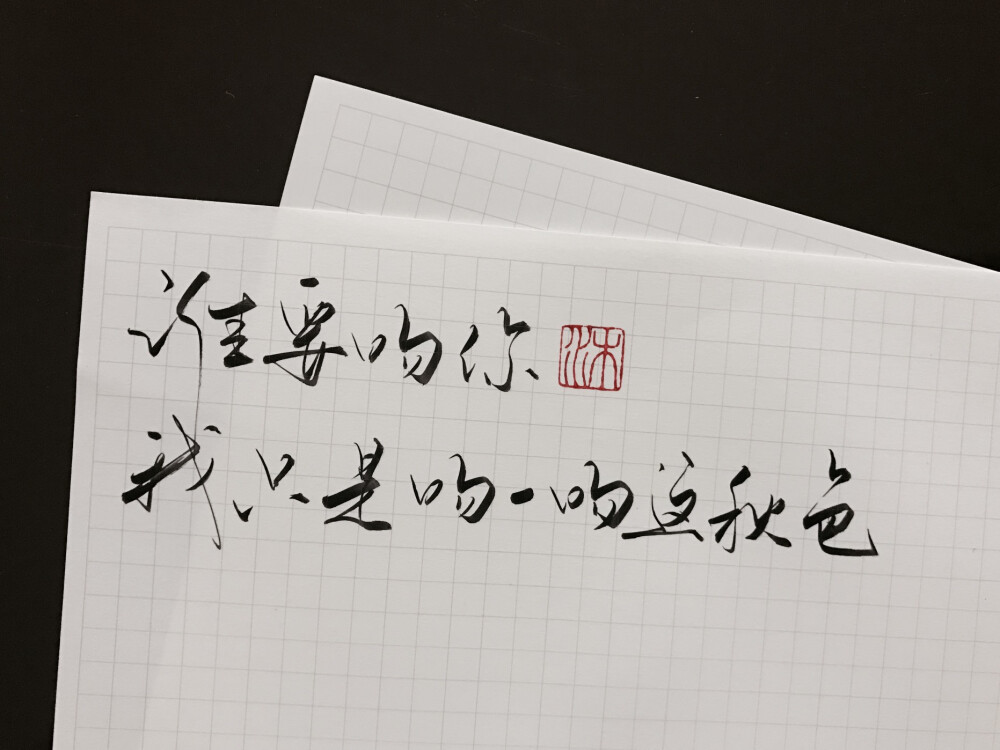 谁要吻你
沐
我只是吻一吻这秋色